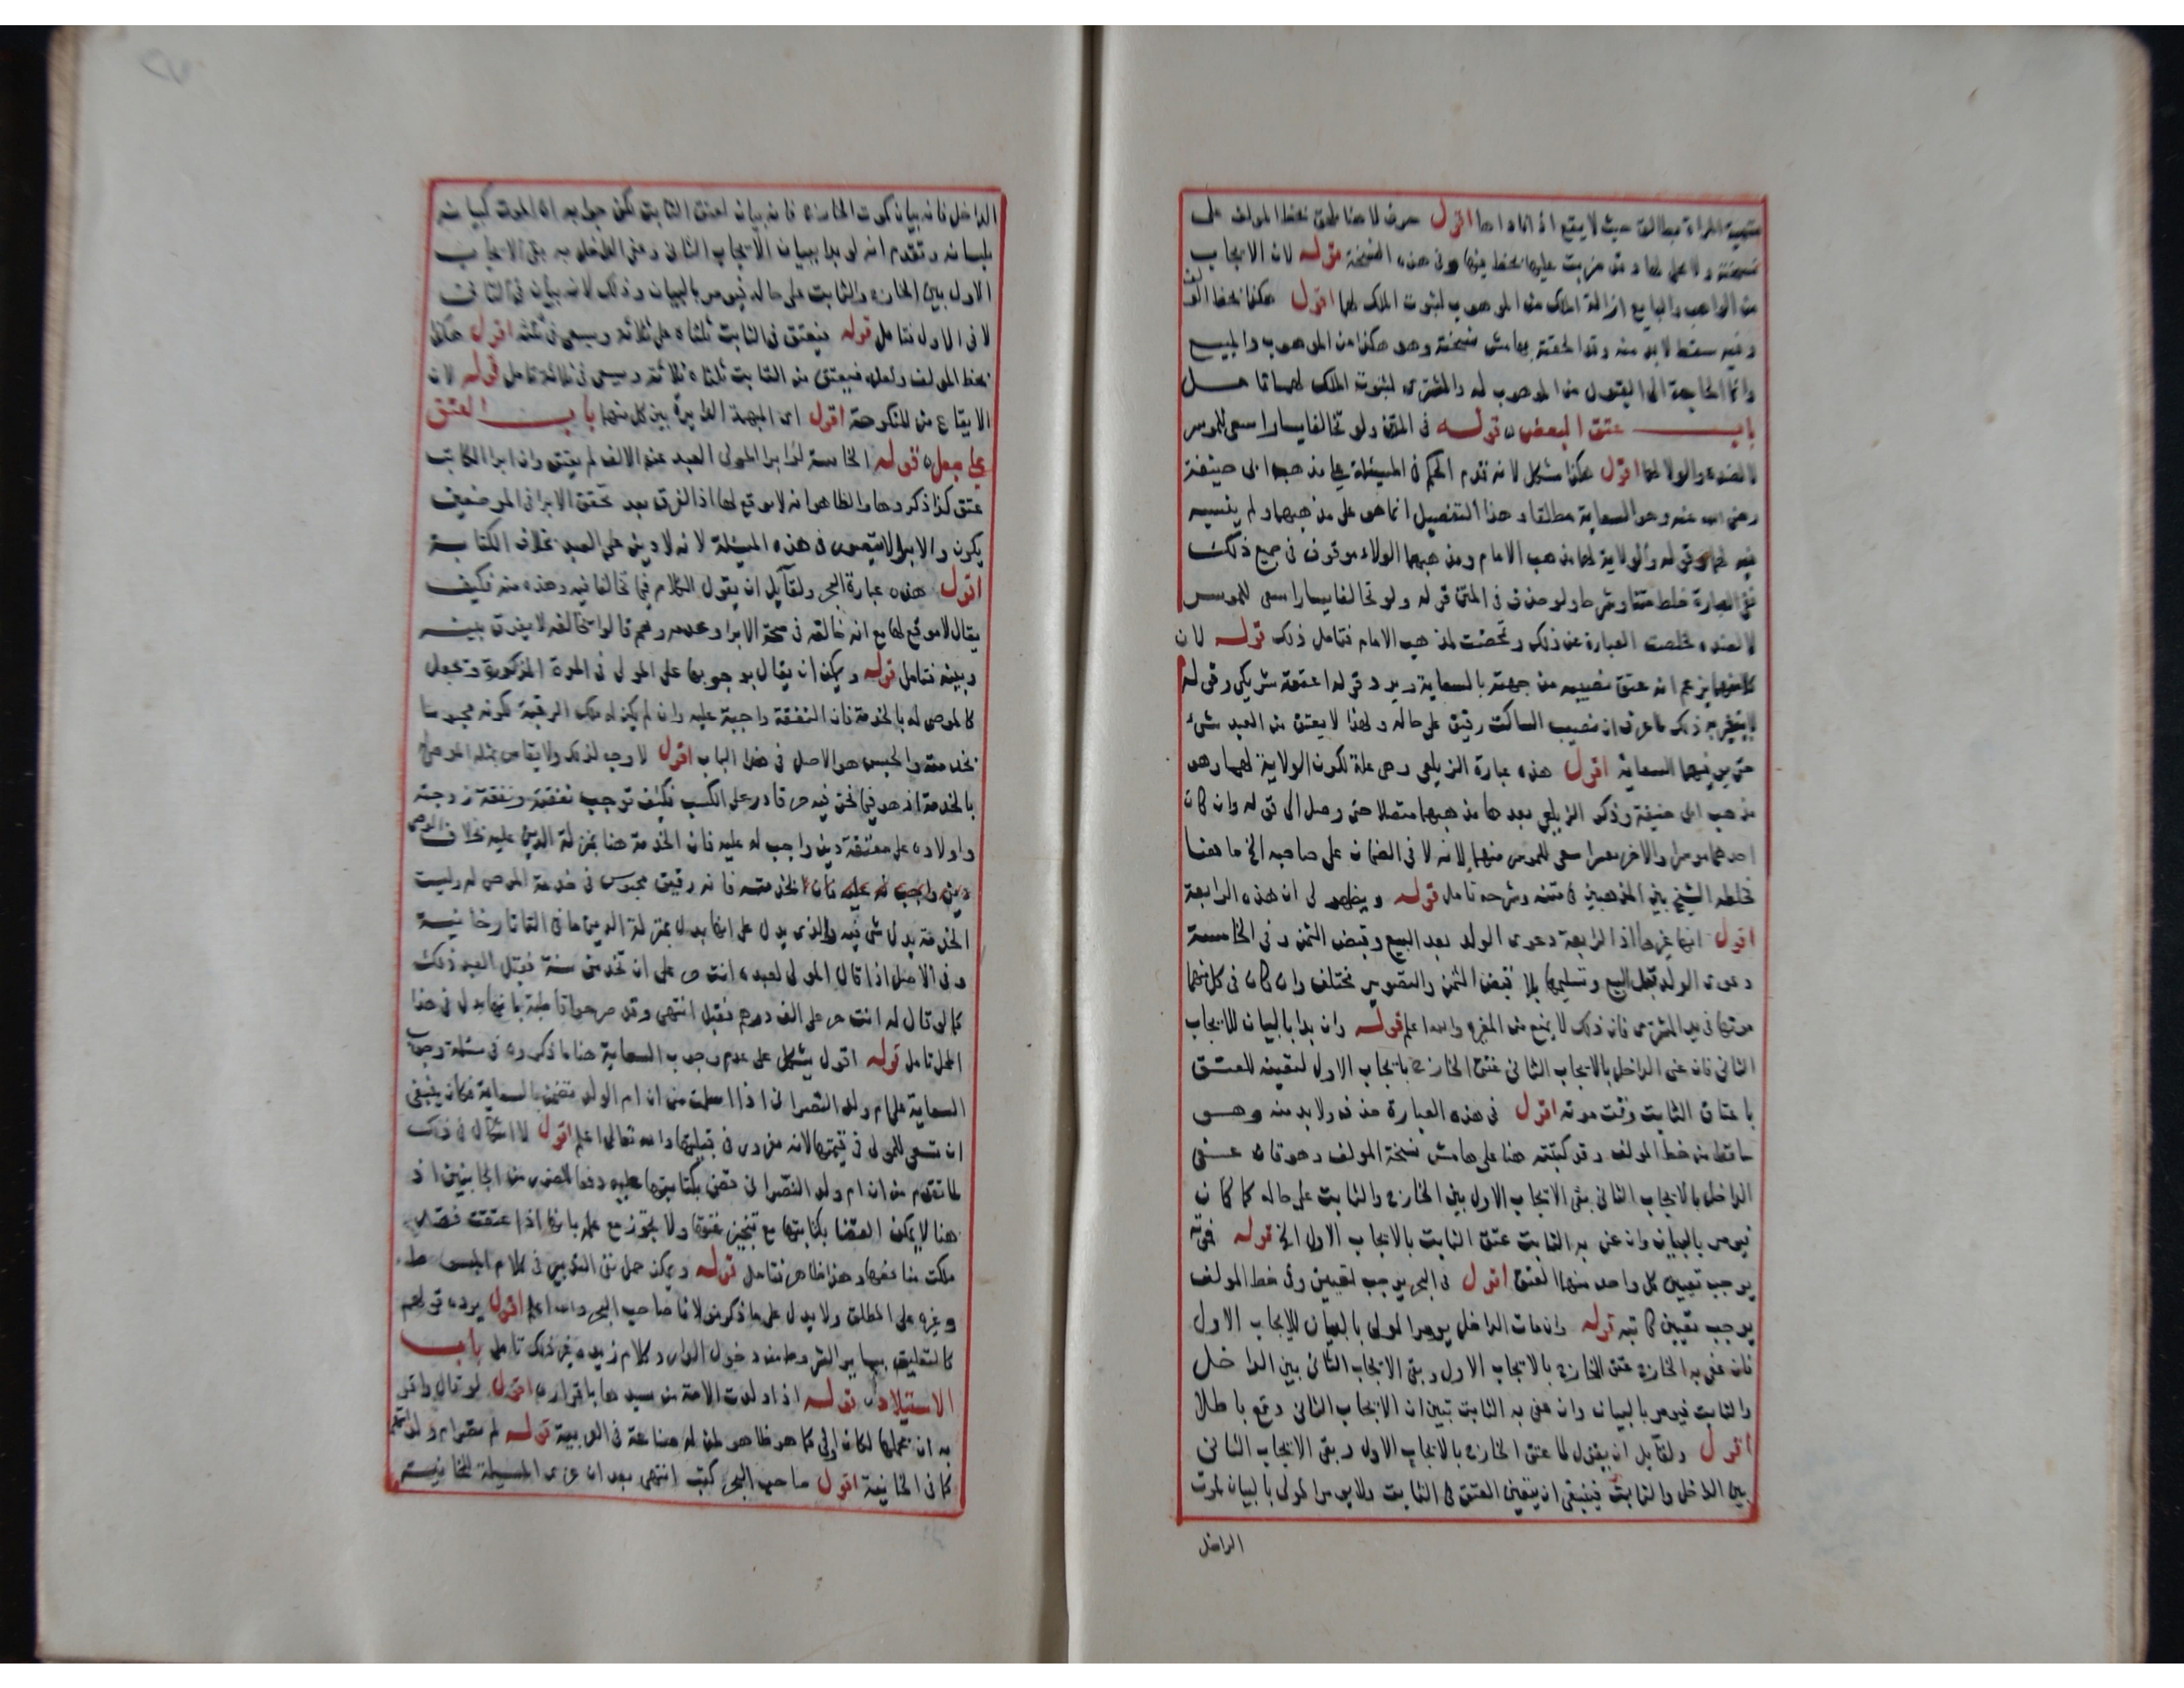 اقول حرف لا هنا ملحق بخط المولف على
نسخته ولا محل لها وقد ضربت عليها بخط فيها وفي هذه النسخة قوله لان الايجاب
من الواهب والبايع ازالة الملك من الموهوب لثبوت الملك لهما اقول هكذا بخط المولف
وفيه سقط لابد منه وقد الحقته بهامش نسخته وهو هكذا من الموهوب والمبيع
وانما الحاجة الى القبول من الموهوب له والمشتري لثبوت الملك لهما تامل
باب عتق البعض قوله في المتن ولو تخالفا يسارا سعى للموسر
لا لضده والولا لهما اقول هكذا مشكل لانه تقدم الحكم في المسئلة على مذهب ابى حنيفة
رضى الله عنه وهو السعاية مطلقا وهذا التفصيل انما هو على مذهبهما ولم ينسبه
فيه لهما وقوله والولاية لهما مذهب الامام ومذهبهما الولاء موقوف في جميع ذلك
ففي العبارة خلط متنا وشرحا ولو حذف في المتن قوله ولو تخالفا يسارا سعى للموسر
لا لضده لخلصت العبارة عن ذلك وتمحضت لمذهب الامام فتامل ذلك قوله لان
كلا منهما يزعم انه عتق نصيبه من جهته بالسعاية ويرد قوله اعتقه شريكي وقوله
لا يتغير به ذلك ما عرف ان نصيب الساكت رقيق على حاله ولهذا لا يعتق من العبد شئ
حتى يوفيهما السعاية اقول هذه عبارة الزيلعي وهي علة لكون الولاية لهما وهو
مذهب ابى حنيفة وذكر الزيلعي بعدها مذهبهما متصلا حتى وصل الى قوله وان كان
احدهما موسرا والاخر معسرا سعى للموسر منهما لانه لا في الضمان على صاحبه الخ ما هنا
فخلطه الشيخ بين المذهبين في متنه وشرحه تامل قوله ويظهر لى ان هذه الرابعة
اقول انها غيرها اذ الرابعة دعوى الولد بعد البيع وقبض الثمن وفي الخامسة
دعوى الولد قبل البيع وتسليمها بلا قبض الثمن والتصوير مختلف وان كان في كل منهما
موتها في يد المشتري فان ذلك لا يمنع من المغيره والله اعلم قوله وان بدا بالبيان للايجاب
الثانى فان عنى الداخل بالايجاب الثانى عتق الخارج بايجاب الاول لتعينه للعتق
باعتاق الثابت وقت موته اقول في هذه العبارة حذف ولابد منه وهو
ساقط من خط المولف وقد كتبته هنا على هامش نسخة المولف وهو فان عنى
الداخل بالايجاب الثانى بقى الايجاب الاول بين الخارج والثابت على حاله كما كان
فيومر بالبيان وان عنى به الثابت عتق الثابت بالايجاب الاول الخ قوله فموته
يوجب تعيين كل واحد منهما العتق اقول في البحر يوجب لتعيين وفي خط المولف
يوجب تعيين كاتبه قوله وان مات الداخل يومر المولى بالبيان للايجاب الاول
فان عنى به الخارج عتق الخارج بالايجاب الاول وبقى الايجاب الثانى بين الداخل
والثابت فيومر بالبيان وان عنى به الثابت تبين ان الايجاب الثانى وقع باطلا
اقول ولقايل ان يقول لما عتق الخارج بالايجاب الاول وبقى الايجاب الثانى
بين الداخل والثابت فينبغى ان يتعين العتق في الثابت ولا يومر المولى بالبيان لموت
الداخل
الداخل فانه بيان كموت الخارج فانه بيان لعتق الثابت لكن جوابه ان الموت كبيانه
بلسانه وتقدم انه لو بدا ببيان الايجاب الثانى وعنى الداخل به بقى الايجاب
الاول بين الخارج والثابت على حاله فيومر بالبيان وذلك لانه بيان في الثانى
لا في الاول فتامل قوله فيعتق في الثابت ثلثاه على ثلاثة ويسعى في ثلثه اقول هكذا
بخط المولف ولعله فيعتق من الثابت ثلثاه ثلاثة ويسعى في ثلاثة تامل قوله لان
الايقاع من المنكوحة اقول اى المبهمة الدايرة بين كل منهما باب العتق
على جعل قوله الخامسة لو ابرا المولى العبد عنه الالف لم يعتق وان ابرا المكاتب
عتق كذا ذكروها والظاهر انه لا موقع لها اذ الفرق بعد تحقق الابرا في الموضعين
يكون والابرا لا يتصور في هذه المسئلة لانه لا دين على العبد بخلاف الكتابة
اقول هذه عبارة البحر ولقايل ان يقول الكلام فيما تخالفا فيه وهذه منه فكيف
يقال لا موقع لها مع انه خالفه في صحة الابرا وعدمه وهم قالوا بتخالفه لا يفرق بينه
وبينه فتامل قوله ويمكن ان يقال بوجوبها على المولى في المدة المذكورة وتجعل
كالموصى له بالخدمة فان النفقة واجبة عليه وان لم يكن له ملك الرقبة لكونه محبوسا
بخدمته والحبس هو الاصل في هذا الباب اقول لا وجه لذلك ولا يقاس بمثله الموصى
بالخدمة اذ هو فيما نحن فيه حر قادر على الكسب فكيف توجب نفقته ونفقة زوجته
واولاده على معتقه دين واجب له عليه فان الخدمة هنا بمنزلة الدين عليه بخلاف الموصى
دين واجب له عليه فان الخدمته فانه رقيق محبوس في خدمة الموصى له وليست
الخدمة بدل شى فيه والذى يدل على انها بدل بمنزلة الدين ما في التاتارخانية
وفي الاصل اذا قال المولى لعبده انت حر على ان تخدمنى سنة فقبل العبد ذلك
كما لو قال له انت حر على الف درهم فقبل انتهى وقد صرحوا قاطبة بانها بدل في هذا
المحل تامل قوله اقول يشكل على عدم وجوب السعاية هنا ما ذكروه في مسئلة وجوب
السعاية على ام ولد النصرانى اذا اسلمت من ان ام الولد متضمن بالسعاية فكان ينبغى
ان تسعى للمولى في قيمتها لانه مروى في قبيلتها والله تعالى اعلم اقول لا اشكال في ذلك
لما تقدم من ان ام ولد النصرانى قضى بكتابتها عليه دفعا للضرر من الجانبين اذ
هنا لا يمكن القضا بكتابتها مع تنجيز عتقها ولا يجوز مع علمه بانها اذا عتقت فقد
ملكت منافعها وهذا ظاهر فتامل قوله ويمكن حمل نفى التدبير في كلام المبسوط
وغيره على المطلق ولا يدل على ما ذكر مولانا صاحب البحر والله اعلم اقول يرده قولهم
كالتعليق بساير الشروط من دخول الدار وكلام زيد وغير ذلك تامل باب
الاستيلاد قوله اذا ولدت الامة من سيدها باقراره اقول لو قال واقر
به ان حملها لكان اولى كما هو ظاهر لمن له صناعة في العربية قوله
كما في الخانية اقول صاحب البحر كتب انتهى بعد ان عزى المسيلة للخانية